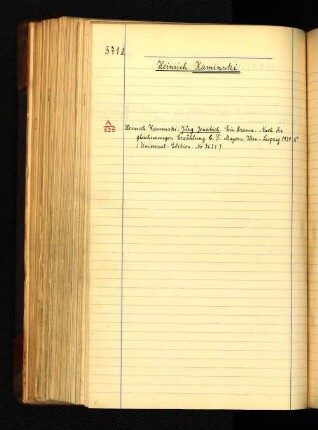 3711
Heinrich Kaminski
A
325
Heinrich Kaminski. Jürg Jenatsch. Ein Drama. Nach der
gleichnamigen Erzählung C. F. Meyers. Wien-Leipzig 1929. 8°
(Universal-Edition. No